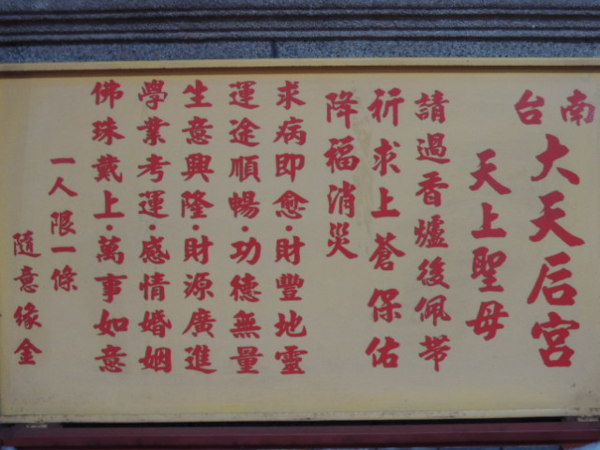 台南
大天后宮
天上聖母
請過香爐後佩帶
祈求上蒼保佑
降福消災
求病即愈·財豐地靈
運途順暢·功德無量
生意興隆·財源廣進
學業考運·感情婚姻
佛珠戴上·萬事如意
一人限一條
隨意緣金